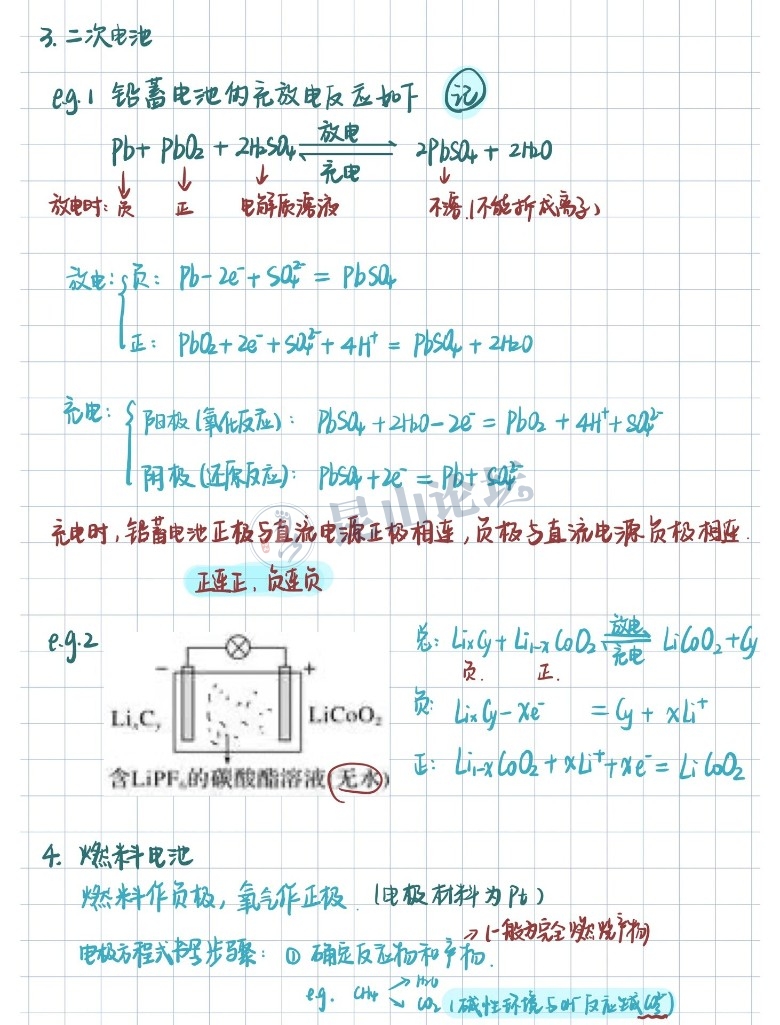 3. 二次电池
e.g.1 铅蓄电池的充放电反应如下 (记)
Pb + PbO₂ + 2H₂SO₄ ⇌ 2PbSO₄ + 2H₂O
放电
充电
放电时: 负 正 电解质溶液 不溶.(不能拆成离子)
放电: 负: Pb - 2e⁻ + SO₄²⁻ = PbSO₄
正: PbO₂ + 2e⁻ + SO₄²⁻ + 4H⁺ = PbSO₄ + 2H₂O
充电: 阳极(氧化反应): PbSO₄ + 2H₂O - 2e⁻ = PbO₂ + 4H⁺ + SO₄²⁻
阴极(还原反应): PbSO₄ + 2e⁻ = Pb + SO₄²⁻
昆山论坛
充电时, 铅蓄电池正极与直流电源正极相连, 负极与直流电源负极相连.
正连正, 负连负
e.g.2
− +
LiₓCᵧ LiCoO₂
含LiPF₆的碳酸酯溶液(无水)
总: LiₓCy + Li₁₋ₓCoO₂ ⇌ LiCoO₂ + Cy
放电
充电
负. 正.
负: LiₓCy - xe⁻ = Cy + xLi⁺
正: Li₁₋ₓCoO₂ + xLi⁺ + xe⁻ = LiCoO₂
4. 燃料电池
燃料作负极, 氧气作正极. (电极材料为Pt)
→ (一般为完全燃烧产物)
电极方程式书写步骤: ① 确定反应物和产物.
e.g. CH₄ → H₂O
↘ CO₂ (碱性环境与OH⁻反应生成CO₃²⁻)